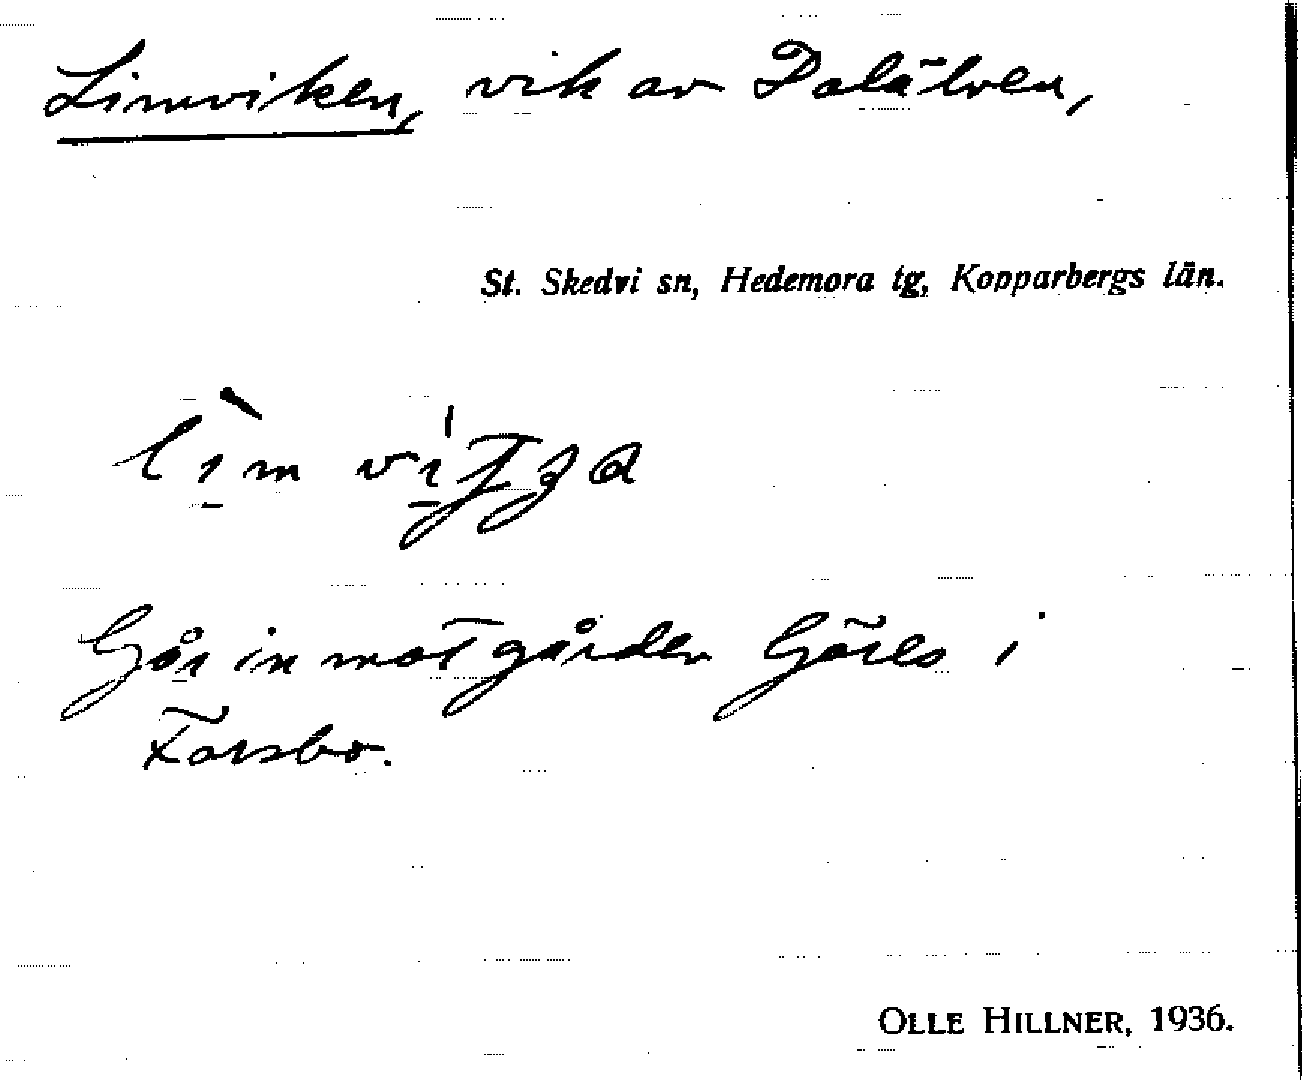 Limviken, vik av Dalälven,
St. Skedvi sn, Hedemora tg, Kopparbergs län.
Går in mot gården Görls i
Forsbo.
OLLE HILLNER, 1936.